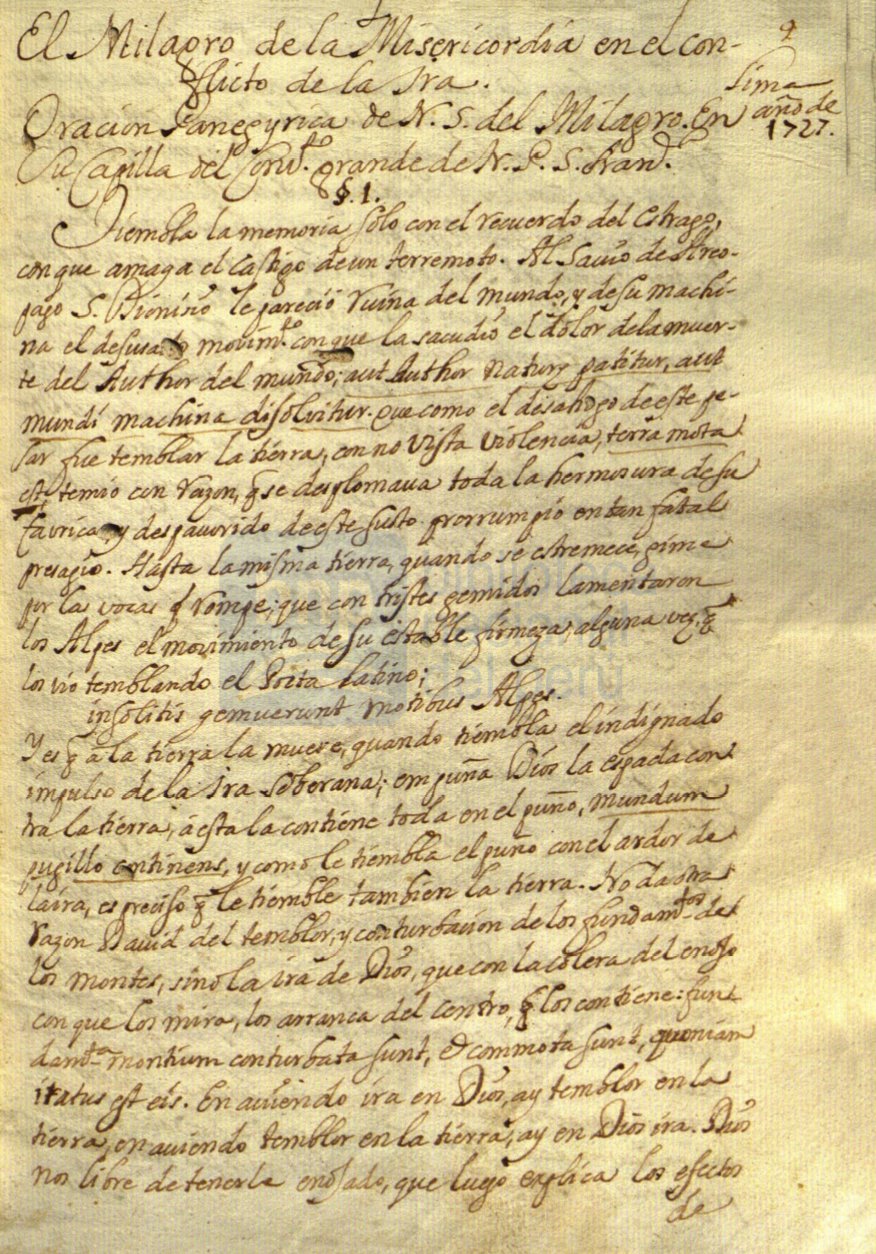 El Milagro de la Misericordia en el con-
flicto de la Ira.
Oracion Panegyrica de N. S. del Milagro. En
Su Capilla del Conv.to grande de N. P. S. Fran.co
9
Lima
año de
1727.
§. 1.
Tiembla la memoria solo con el recuerdo del Estrago,
con que amaga el Castigo de un terremoto. Al Savio de Areo-
pago S. Dionisio le pareció ruina del mundo, y de su machi-
na el desusado movim.to con que la sacudio el dolor de la muer-
te del Author del mundo; aut Author naturę patitur, aut
mundi machina disolvitur. Que como el desahogo de este pe-
sar fue temblar la tierra, con no vista violencia, terra mota
est; temio con razon, q̃ se desplomava toda la hermosura de su
fabrica, y despavorido de este susto prorrumpio en tan fatal
presagio. Hasta la misma tierra, quando se estremece, gime
por las vocas q̃ rompe; que con tristes gemidos lamentaron
los Alpes el movimiento de su estable firmeza, alguna vez, q̃
los vio temblando el Poeta latino;
insolitis gemuerunt motibus Alpes.
Y es q̃ a la tierra la mueve, quando tiembla el indignado
impulso de la Ira Soberana; empuña Dios la espada con-
tra la tierra, á esta la contiene toda en el puño, mundum
pugillo continens, y como le tiembla el puño con el ardor de
la ira, es preciso q̃ le tiemble tambien la tierra. No da otra
razon David del temblor, y conturbacion de los fundam.tos de
los montes, sino la ira de Dios, que con la colera del enojo
con que los mira, los arranca del centro, q̃ los contiene: fun-
dam.ta montium conturbata sunt, & commota sunt, quoniam
iratus est eis. En aviendo ira en Dios, ay temblor en la
tierra, en aviendo temblor en la tierra, ay en Dios ira. Dios
nos libre de tenerle enojado, que luego explica los efectos
de